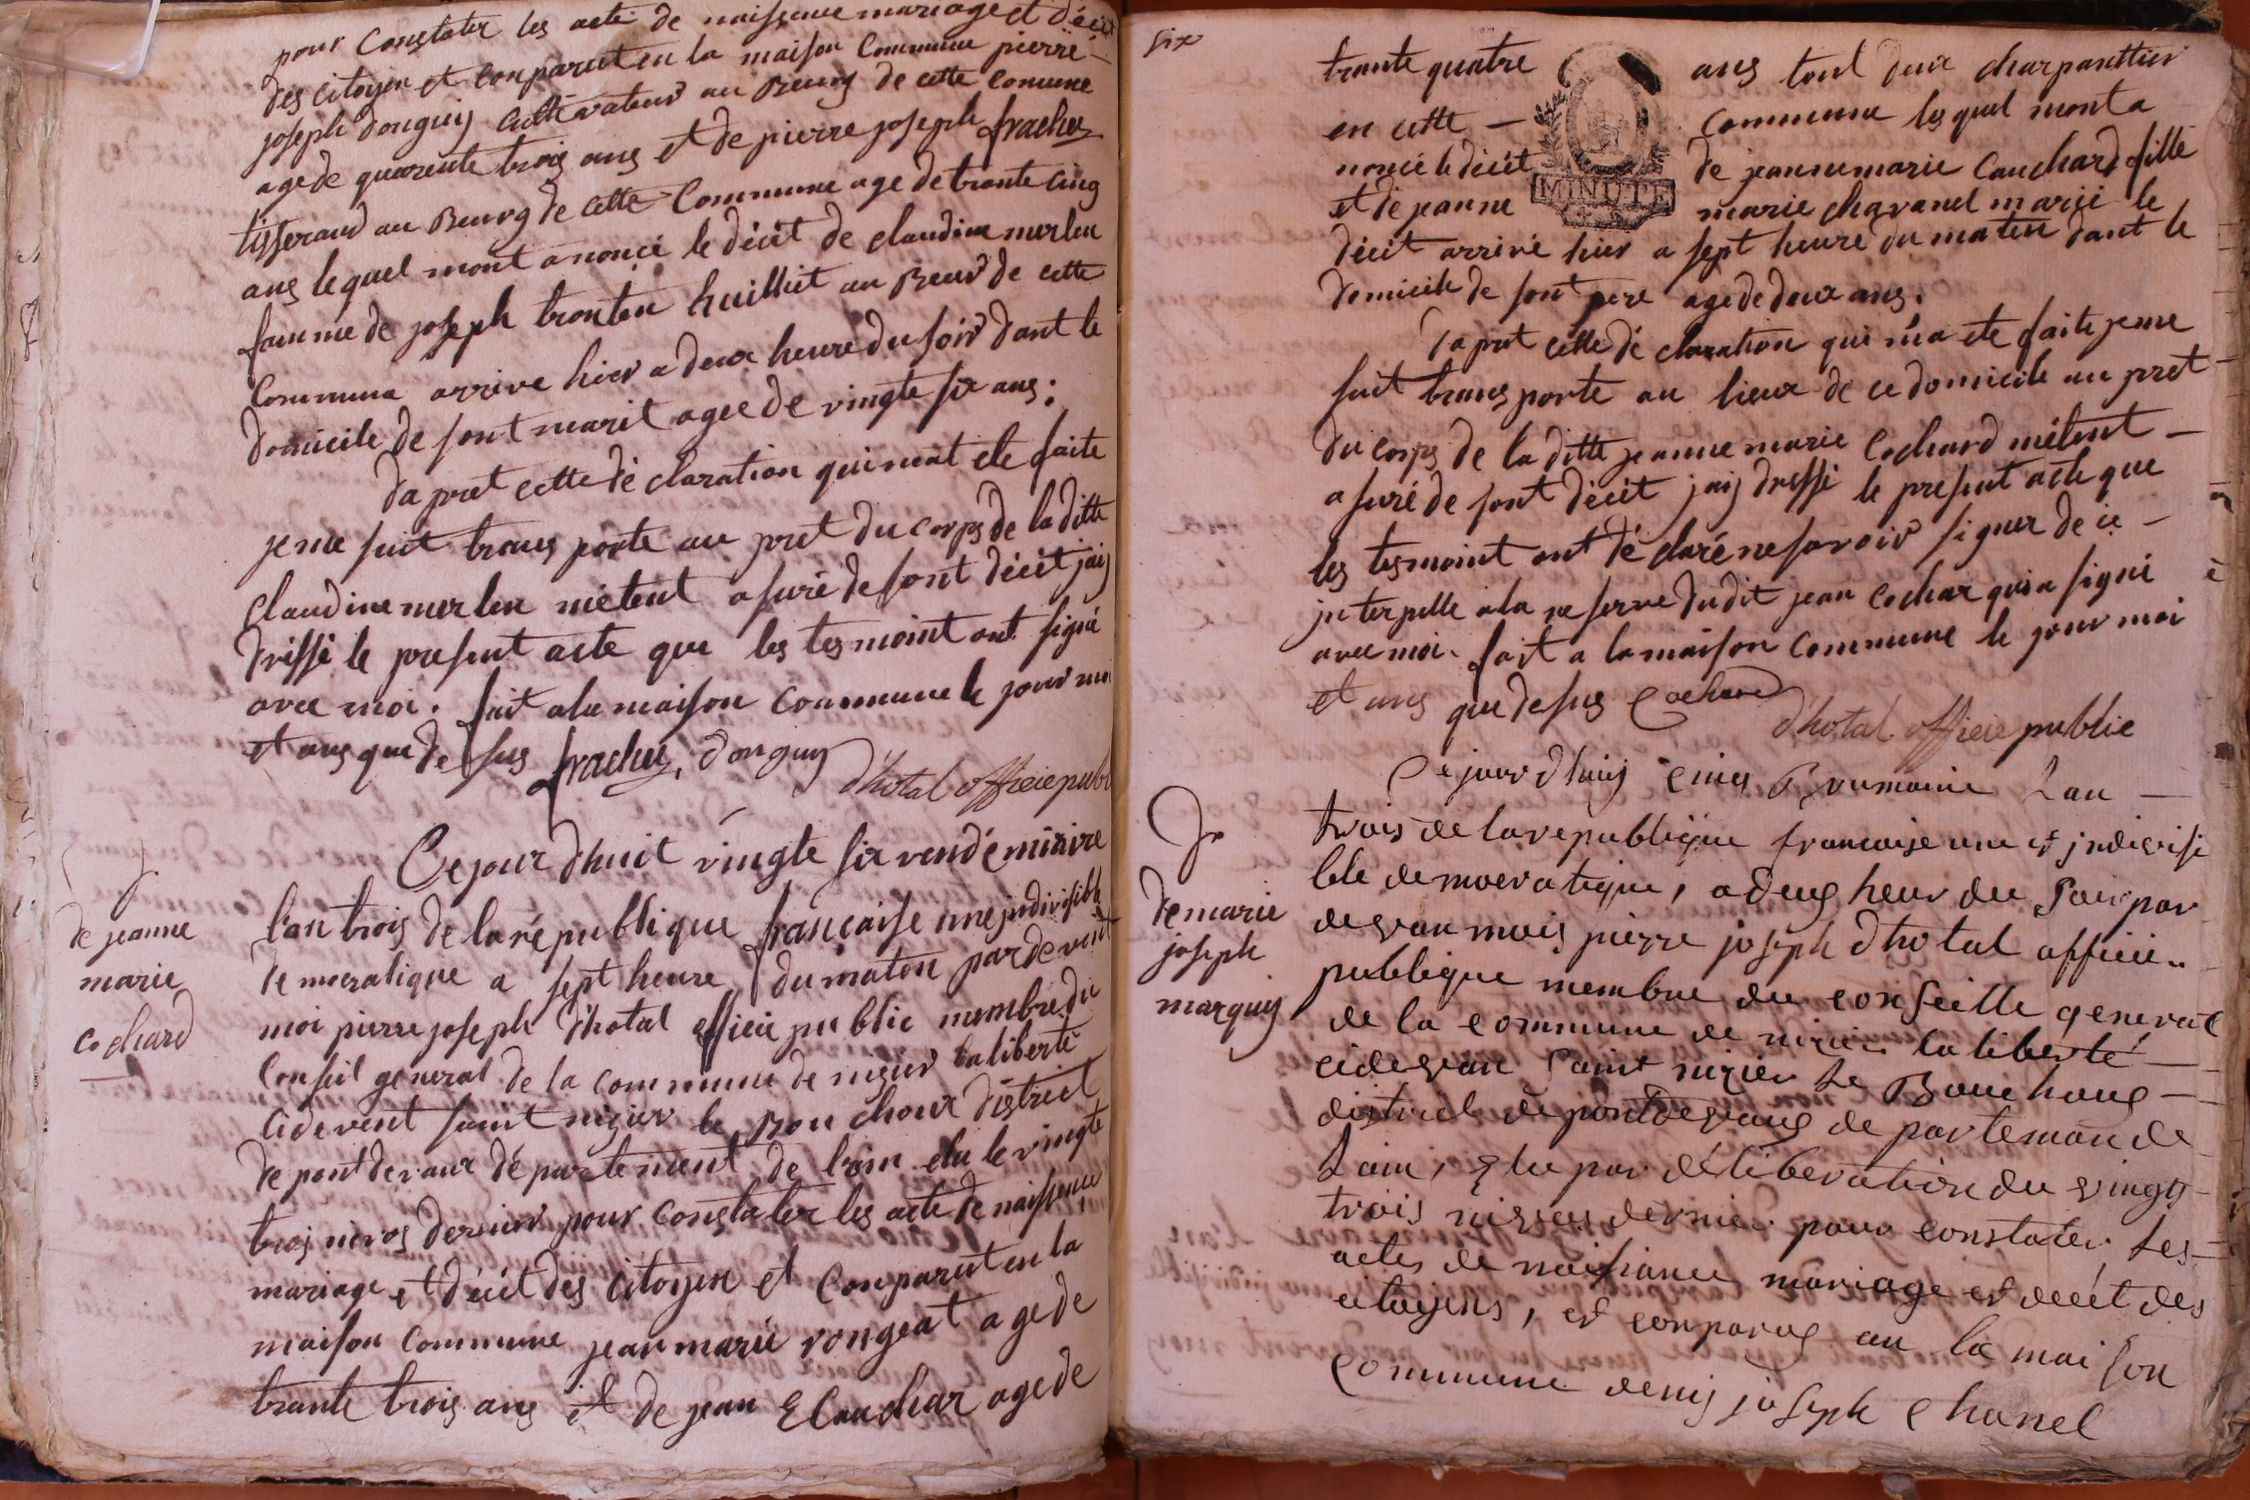 pour Constater les acte de naissance mariage et décit
des citoyen et Conparut en la maison Commune pierre
joseph donguy Cultivateur au Bourg de cette Comune
age de quarente trois ans et de pierre joseph frachez
tisserand au Bourg de cette Commune age de trante cinq
ans lequel mont anoncé le décit de claudine merlen
famme de joseph tronten huilliet au Bour de cette
Commune arrive hier a deux heure du soir dant le
domicile de sont marit agee de vingte six ans.
da pret cette dé claration qui mat ete faite
je me suit trans porte au pret du corps de la ditte
Claudine merlen métent asuré de sont décit jaij
dressé le present acte que les tesmoint ont signé
avec moi. fait ala maison Commune le jour moi
et ans que de sus frachez, donguy
d'hotal officie publ
Ce jour dhuit vingte six vendémiaire
de jeanne
marie
Cochard
l'an trois de la république francaise une jndivisible
démocratique a sept heure du maton par devent
moi pierre joseph d'hotal officie public membre du
Conseil general de la commune de nizier la liberté
cidevent saint nizier le Bouchoux district
de pont devaux département de l'ain elu le vingte
trois nivos dernier pour constater les acte de naissence
mariage et décit des citoyen et Conparut en la
maison commune jean marie rongeat age de
trante trois ans et de jean Cauchar age de
six
trante quatre ans tout deux charpanttier
en cette — commune lesquel mont a
noncé le décit de jeanne marie Cauchard fille
et de jeanne marie chavanel marié le
MINUTE
décit arrivé hier a sept heure du maten dant le
domicile de sont pere age de deux ans.
Da pret cette dé claration qui m'a ete faite je me
suit trans porte au lieux de ce domicile au pret
du corps de la ditte jeanne marie Cochard métent —
asuré de sont décit jaij dressé le present acte que
les tesmoint ont dé claré ne savoir signer de ce —
jnterpelle ala reserve dudit jean Cochar qui a signé
avec moi. fait a la maison Commune le jour moi
et ans que de sus Cochard
d'hotal officie publie
Ce jour d'huij cinq Brumaire Lan —
De marie
joseph
marquis
trois de la republique francaise une et jndivisi
ble democratique, a deus heur du Soir par
devan mois pierre joseph dhotal officie
publique membre du conseille general
de la commune de nizier la liberté —
cidevan Saint nizier Le Bouchous —
district de pontdevaus de parteman de
Lain, Elu par déliberation du vingt
trois nivos dernier pour constater Les
actes de naissance mariage et decit des
citoyens, et conparus au la maison
commune denis joseph Chanel